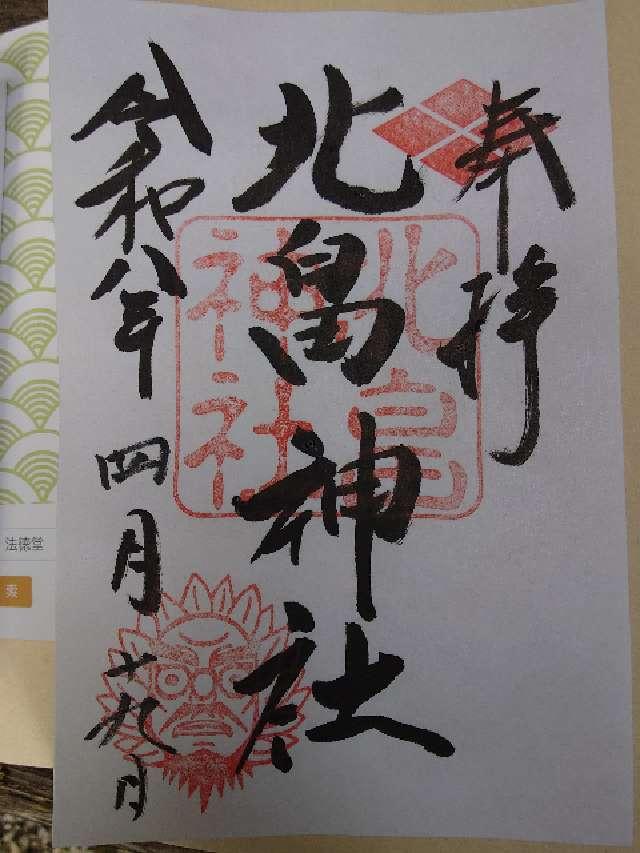 奉拝
北畠神社
北畠
神社
令和八年四月十九日
法徳堂
索